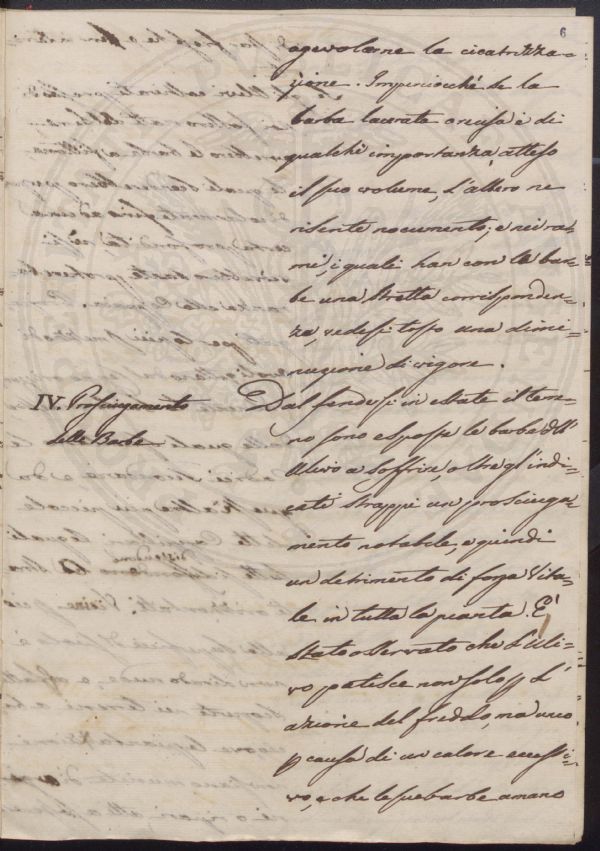 6
agevolarne la cicatrizza=
zione. Imperciocchè se la
barba lacerata o recisa è di
qualche importanza, atteso
il suo volume, l'albero ne
risente nocumento; e nei ra=
mi, i quali han con la bar=
be una stretta corrisponden=
za, vedesi tosto una dimi=
nuzione di vigore.
IV. Prosciugamento
delle Barbe
Dal fendersi in estate il terre=
no sono esposte le barbe dell'
Ulivo a soffrire, oltre gl'indi=
cati strappi un prosciuga=
mento notabile, e quindi
un detrimento di forza vita=
le in tutta la pianta. È
stato osservato che l'Uli=
vo patisce non solo p l'
azione del freddo, ma anco
p causa di un calore eccessi=
vo, e che le sue barbe amano